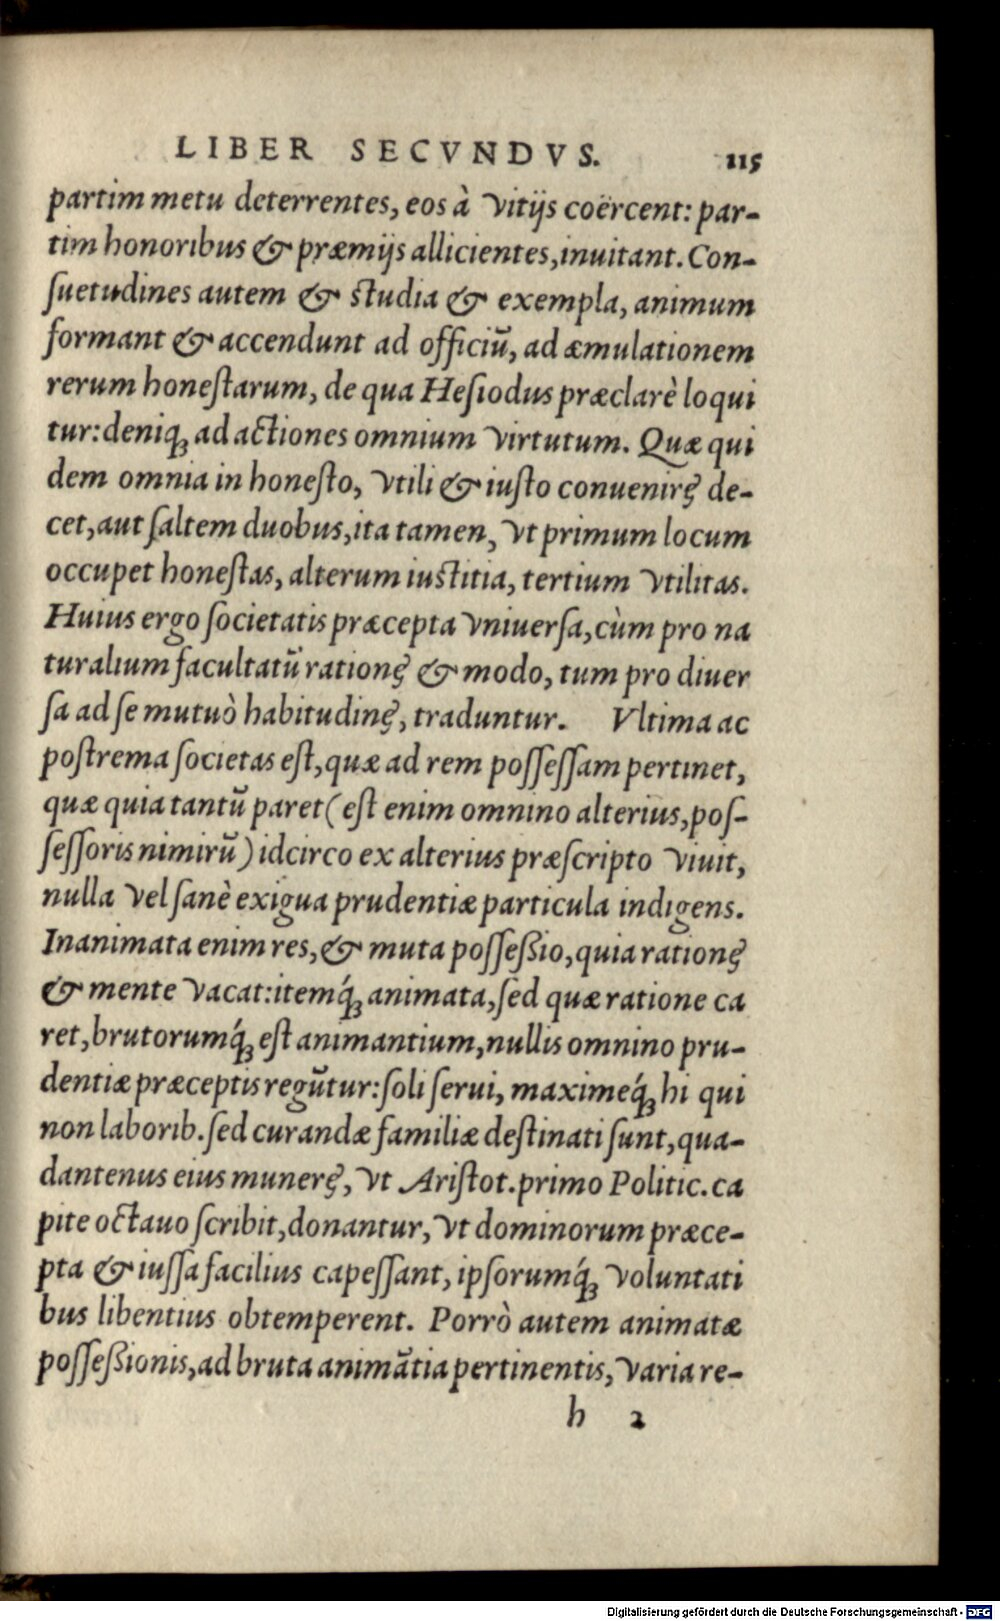 LIBER SECVNDVS. 115
partim metu deterrentes, eos à vitijs coërcent: par-
tim honoribus & præmijs allicientes, inuitant. Con-
ſuetudines autem & ſtudia & exempla, animum
formant & accendunt ad officiũ, ad æmulationem
rerum honeſtarum, de qua Heſiodus præclarè loqui
tur: deniqꝫ ad actiones omnium virtutum. Quæ qui
dem omnia in honeſto, vtili & iuſto conuenirę de-
cet, aut ſaltem duobus, ita tamen, vt primum locum
occupet honeſtas, alterum iuſtitia, tertium vtilitas.
Huius ergo ſocietatis præcepta vniuerſa, cùm pro na
turalium facultatũ rationę & modo, tum pro diuer
ſa ad ſe mutuò habitudinę, traduntur. Vltima ac
poſtrema ſocietas eſt, quæ ad rem poſſeſſam pertinet,
quæ quia tantũ paret (eſt enim omnino alterius, poſ-
ſeſſoris nimirũ) idcirco ex alterius præſcripto viuit,
nulla vel ſanè exigua prudentiæ particula indigens.
Inanimata enim res, & muta poſſeßio, quia rationę
& mente vacat: itemq́ꝫ animata, ſed quæ ratione ca
ret, brutorumq́ꝫ eſt animantium, nullis omnino pru-
dentiæ præceptis regũtur: ſoli ſerui, maximeq́ꝫ hi qui
non laborib. ſed curandæ familiæ deſtinati ſunt, qua-
dantenus eius munerę, vt Ariſtot. primo Politic. ca
pite octauo ſcribit, donantur, vt dominorum præce-
pta & iuſſa facilius capeſſant, ipſorumq́ꝫ voluntati
bus libentius obtemperent. Porrò autem animatæ
poſſeßionis, ad bruta animãtia pertinentis, varia re-
h 2
Digitalisierung gefördert durch die Deutsche Forschungsgemeinschaft - DFG